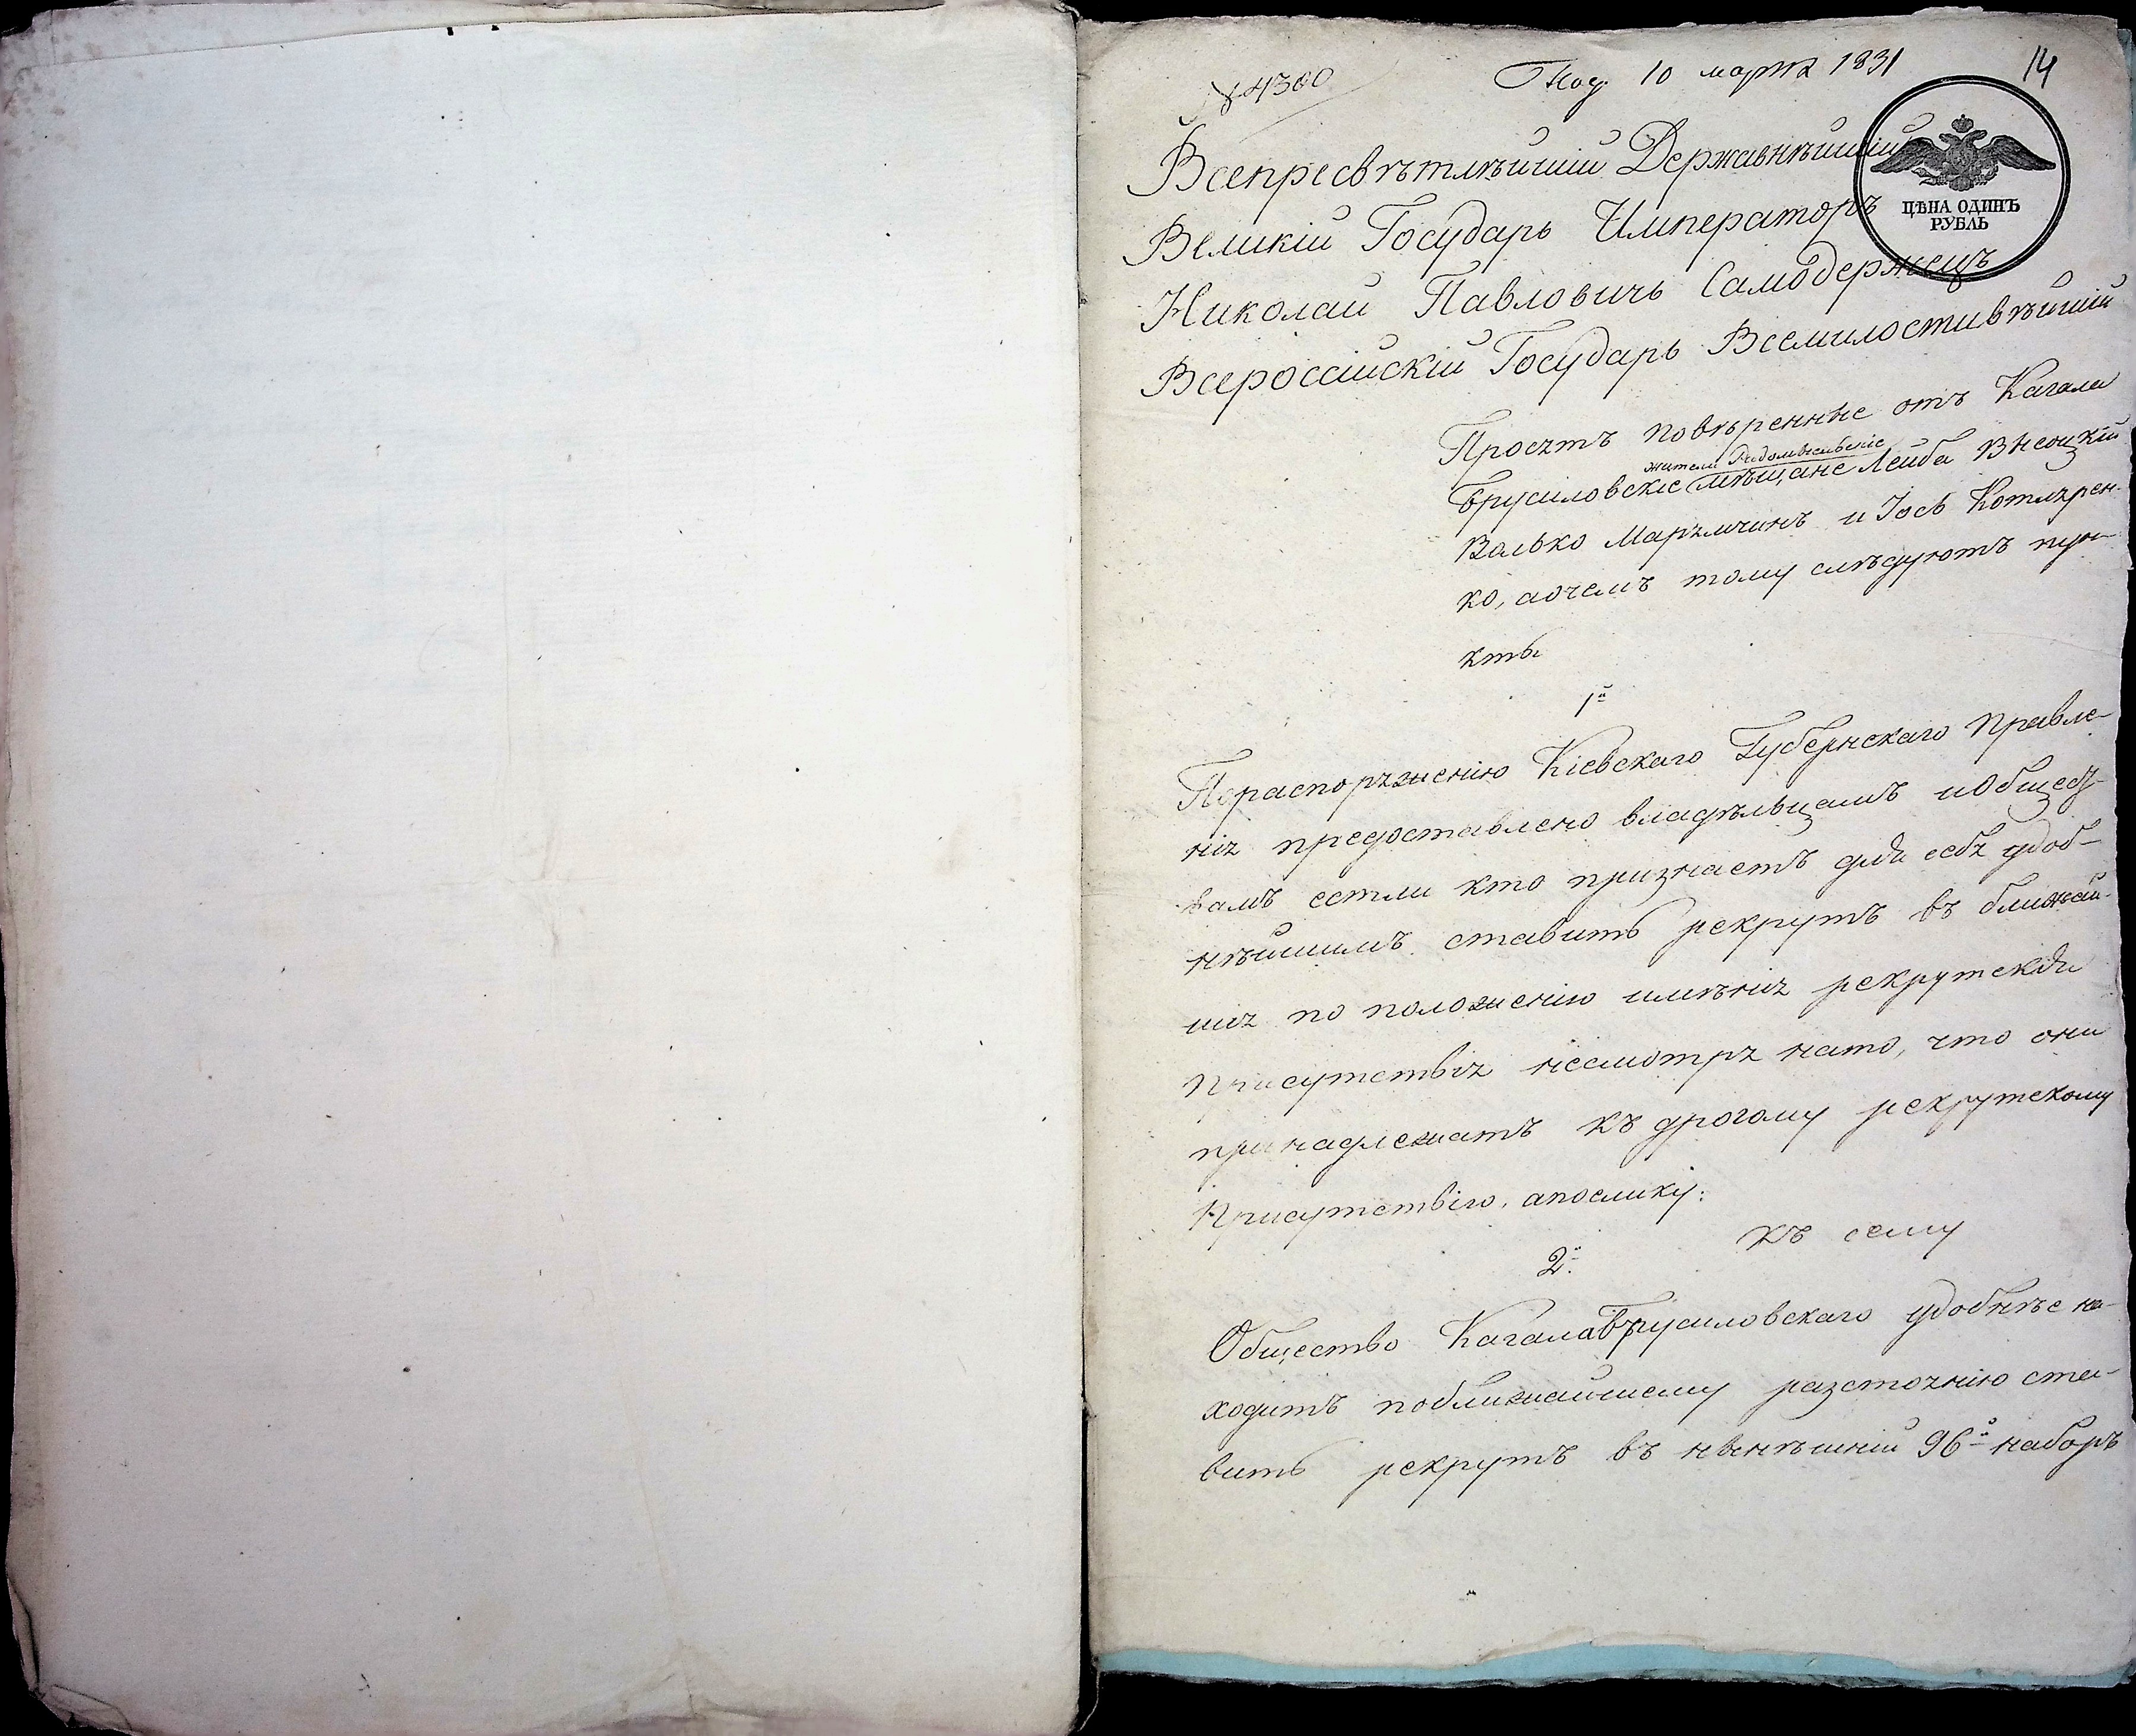 № 4360
Под. 10 марта 1831
14
Всепресвѣтлѣйшій Державнѣйшій
ЦѢНА ОДИНЪ
РУБЛЬ
Великій Государь Императоръ
Николай Павловичь Самодержецъ
Всероссійскій Государь Всемилостивѣйшій
Просятъ повѣренные отъ Кагала
жители Радомысльскіе
Брусиловскіе мѣщане Лейба Высоцкій
Волько Марьямчинъ и Іось Котляren-
ко, аочемъ тому слѣдуютъ пун-
кты
1й
Пораспоряженію Кіевскаго Губернскаго Правле-
нія предоставлено владѣльцамъ иОбщест-
вамъ естли кто признаетъ для себя удоб-
нѣйшимъ ставить рекрутъ въ ближай-
шія по положенію имѣнія рекрутскія
Присутствія несмотря нато, что они
принадлежатъ къ дрогому рекрутскому
Присутствію, апоелику:
къ сему
2й
Общество Кагала Брусиловскаго удобнѣе на-
ходитъ поближайшему разстоянію ста-
вить рекрутъ въ нынѣшній 96й наборъ